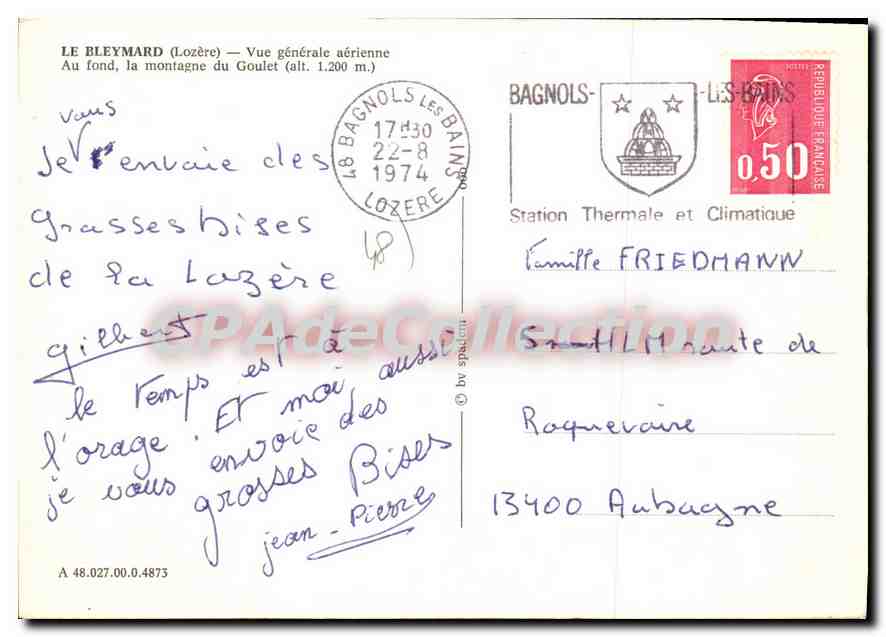 LE BLEYMARD (Lozère) — Vue générale aérienne
Au fond, la montagne du Goulet (alt. 1.200 m.)
vous
Je envoie des
grasses bises
de la Lozère
Gilbert
le temps est à
l'orage. Et moi aussi
je vous envoie des
grosses Bises
jean-Pierre
A 48.027.00.0.4873
48 BAGNOLS LES BAINS
17H30
22-8
1974
LOZERE
48
BAGNOLS-LES-BAINS
Station Thermale et Climatique
POSTES
REPUBLIQUE FRANÇAISE
0,50
Famille FRIEDMANN
HLM route de
Roquevaire
13400 Aubagne
© by spadem
CPAdeCollection